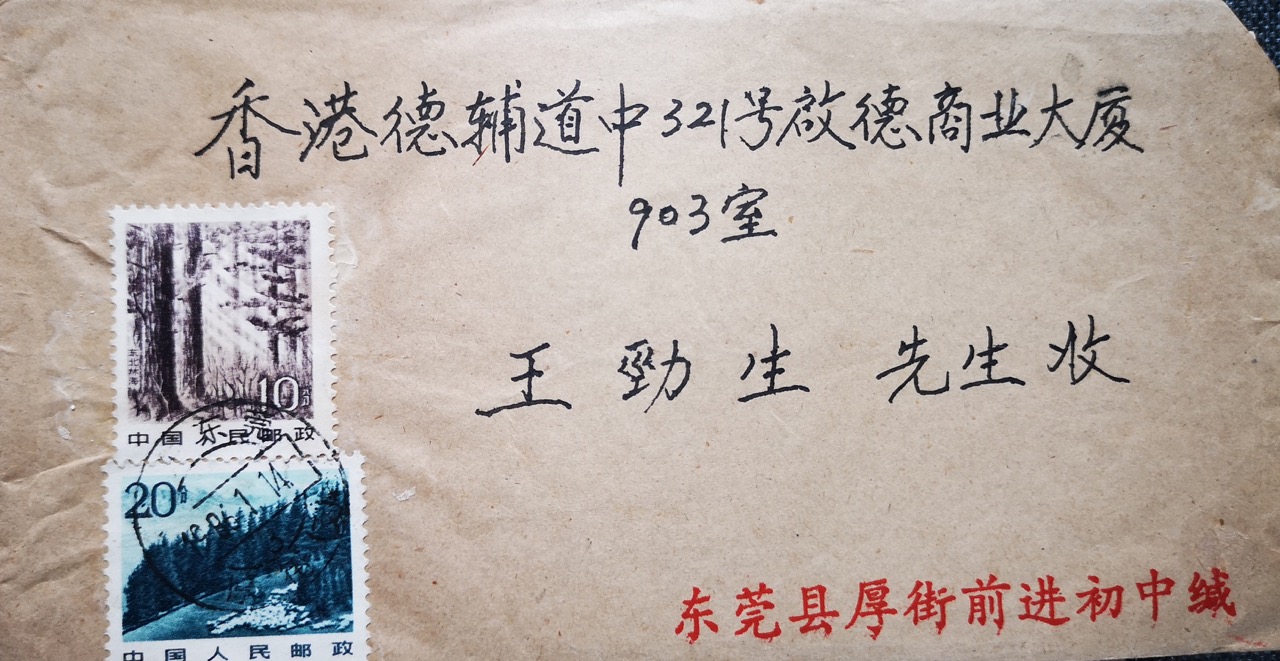 香港德辅道中321号啟德商业大厦
903室
王勁生 先生收
东北林海
10分
中国人民邮政
东莞
20分
中国人民邮政
东莞县厚街前进初中缄